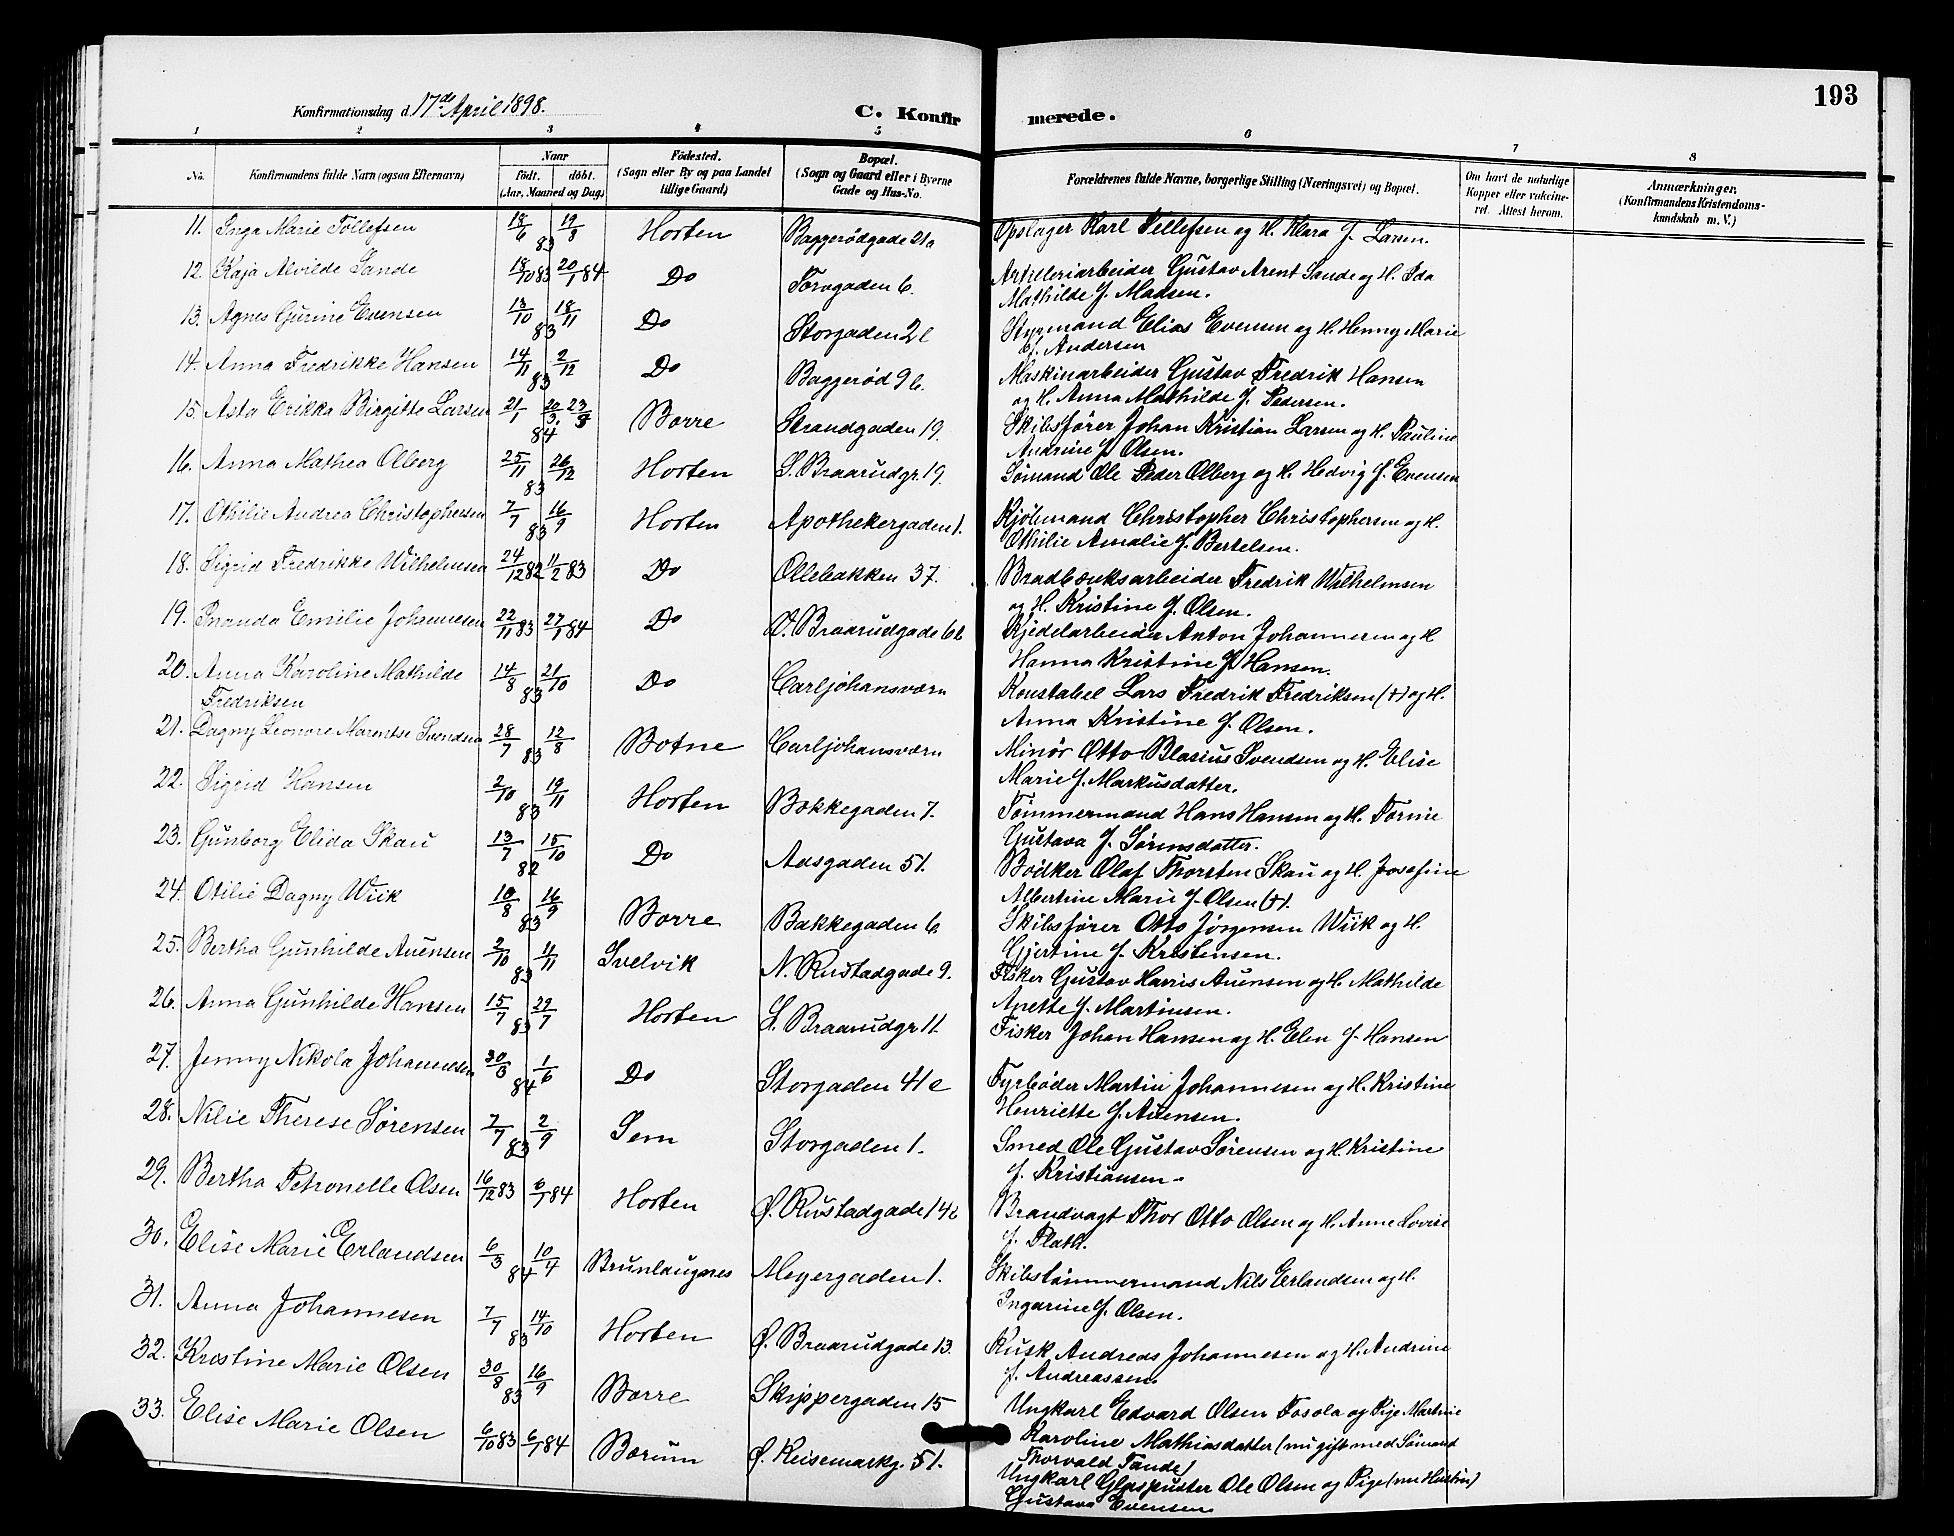 193
Konfirmationsdag d. 17de April 1898.
C. Konfirmerede.
1 2 3 4 5 6 7 8
No. Konfirmandens fulde Navn (ogsaa Efternavn) Naar födt. döbt. (Aar, Maaned og Dag) Födested. (Sogn eller By og paa Landet tillige Gaard) Bopæl. (Sogn og Gaard eller i Byerne Gade og Hus-No. Forældrenes fulde Navne, borgerlige Stilling (Næringsvei) og Bopæl. Om havt de naturlige Kopper eller vaksineret. Attest herom. Anmærkninger. (Konfirmandens Kristendomskundskab m. V.)
11. Inga Marie Tollefsen 18/6 19/8 83 Horten Baggerödgade 21a Opslager Karl Tellefsen og H. Klara f. Larsen.
12. Kaja Alvilde Sande 18/10 83 20/1 84 Do Torvgaden 6. Artilleriarbeider Gustav Arent Sande og H. Ida
Mathilde f. Madsen.
13. Agnes Gurine Evensen 13/10 18/11 83 Do Storgaden 2l Styrmand Elias Evensen og H. Henny Marie
f. Andersen
14. Anna Fredrikke Hansen 14/11 2/12 83 Do Baggerød 9b. Maskinarbeider Gustav Fredrik Hansen
og H. Anna Mathilde f. Pedersen.
15. Asta Erikka Birgitte Larsen 21/1 20/3 23/3 84 Borre Strandgaden 19. Skibsfører Johan Kristian Larsen og H. Pauline
Andrine f. Olsen.
16. Anna Mathea Olberg 25/11 26/12 83 Horten S. Braarudgr. 19. Sømand Ole Peder Olberg og H. Hedvig f. Evensen
17. Othilie Andrea Christophersen 7/7 16/9 83 Horten Apothekergaden 1. Kjölsmand Christopher Christophersen og H.
Othilie Amalie f. Bertelsen.
18. Sigrid Fredrikke Wilhelmsen 24/12 82 11/2 83 Do Ollebakken 37. Bradbænksarbeider Fredrik Wilhelmsen
og H. Kristine f. Olsen.
19. Emilie Johannesen 22/11 83 27/1 84 Do V. Braarudgade 6b Kjedelarbeider Anton Johannesen og H
Hanna Kristine f. Hansen.
20. Anna Karoline Mathilde 14/8 21/10 83 Do Carljohansværn Konstabel Lars Fredrik Fredriksen (†) og H.
Fredriksen Anna Kristine f. Olsen.
21. Dagny Leonore Marentse Svendsen 28/7 12/8 83 Botne Carljohansværn Minör Otto Blasius Svendsen og H. Elise
Marie f. Markusdatter.
22. Sigrid Hansen 2/10 19/11 83 Horten Bakkegaden 7. Tömmermand Hans Hansen og H. Torine
Gustava f. Sörensdatter.
23. Gunborg Elida Skau 13/7 15/10 82 Do Aasgaden 51. Bödker Olaf Thorsten Skau og H. Josefine
Albertine Marie f. Olsen (†).
24. Otilie Dagny Wiik 10/8 16/9 83 Borre Bakkegaden 6 Skibsfører Otto Jørgensen Wiik og H.
Gjertine f. Kristensen.
25. Bertha Gunhilde Auensen 2/10 11/11 83 Svelvik N. Rustadgade 9. Fisker Gustav Harris Auensen og H. Mathilde
Anette f. Martinsen.
26. Anna Gunhilde Hansen 15/7 29/7 83 Horten S. Braarudgr 11. Fisker Johan Hansen og H. Elen f. Hansen
27. Jenny Nikola Johannesen 30/3 1/6 84 Do Storgaden 41e Fyrböder Martin Johannesen og H. Kristine
Henriette f. Auensen.
28. Nilie Therese Sørensen 7/7 2/9 83 Sem Storgaden 1. Smed Ole Gustav Sørensen og H. Kristine
f. Kristiansen.
29. Bertha Petronelle Olsen 16/12 83 6/1 84 Horten Ø. Rustadgade 14b Brandvagt Thor Otto Olsen og H. Anne Lovise
f. Plath.
30. Elise Marie Erlandsen 6/3 10/4 84 Brunlaugnes Meyergaden 1. Skibstömmermand Nils Erlandsen og H.
Ingerine f. Olsen.
31. Anna Johannesen 7/7 14/10 83 Horten Ø. Braarudgade 13. Kusk Andreas Johannesen og H. Andrine
f. Andreassen.
32. Kristine Marie Olsen 30/8 16/9 83 Borre Skippergaden 15 Ungkarl Edvard Olsen Fosola og Pige Martine
Karoline Mathiasdatter (nu gift med Sömand
Thorvald Tande)
33. Elise Marie Olsen 6/10 83 6/1 84 Bærum Ø. Keisemarkg. 51. Ungkarl Glaspuster Ole Olsen og Pige (nu Hustru)
Gustava Evensen